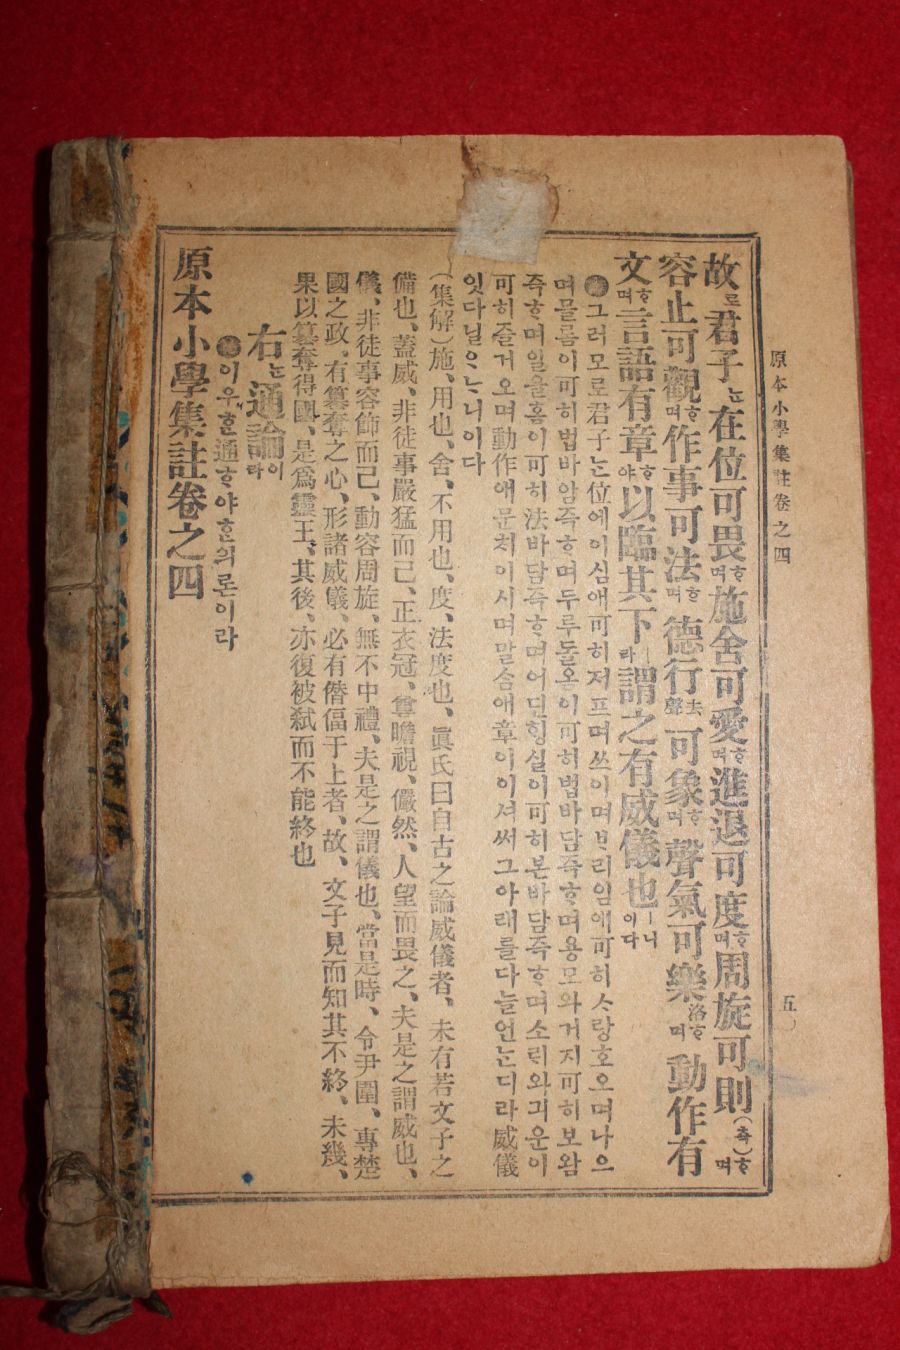 原本小學集註卷之四
五〇
故로君子는在位可畏ᄒᆞ며施舍可愛ᄒᆞ며進退可度ᄒᆞ며周旋可則(측)ᄒᆞ며
容止可觀ᄒᆞ며作事可法ᄒᆞ며德行去聲可象ᄒᆞ며聲氣可樂洛ᄒᆞ며動作有
文ᄒᆞ며言語有章ᄒᆞ야以臨其下ㅣ라謂之有威儀也ㅣ니이다
그러모로君子ᄂᆞᆫ位에이심애可히저프며쓰이며ᄇᆞ리임애可히ᄉᆞ랑호오며나으
며믈름이可히법바암즉ᄒᆞ며두루돌옴이可히법바담즉ᄒᆞ며용모와거지可히보왐
즉ᄒᆞ며일을홈이可히法바담즉ᄒᆞ며어딘ᄒᆡᆼ실이可히본바담즉ᄒᆞ며소ᄅᆡ와긔운이
可히즐거오며動作애문치이시며말ᄉᆞᆷ애章이이셔써그아래ᄅᆞᆯ다ᄂᆞᆯ언ᄂᆞᆫ디라威儀
잇다닐ᄋᆞᄂᆞ니이다
(集解)施、用也、舍、不用也、度、法度也、眞氏曰自古之論威儀者、未有若文子之
備也、蓋威、非徒事嚴猛而已、正衣冠、尊瞻視、儼然、人望而畏之、夫是之謂威也、
儀、非徒事容飾而已、動容周旋、無不中禮、夫是之謂儀也、當是時、令尹圍、專楚
國之政、有簒奪之心、形諸威儀、必有僭偪于上者、故、文子見而知其不終、未幾、
果以簒奪得國、是爲靈王、其後、亦復被弑而不能終也
右는通論이라
이우흔通ᄒᆞ야ᄒᆞᆫ의론이라
原本小學集註卷之四